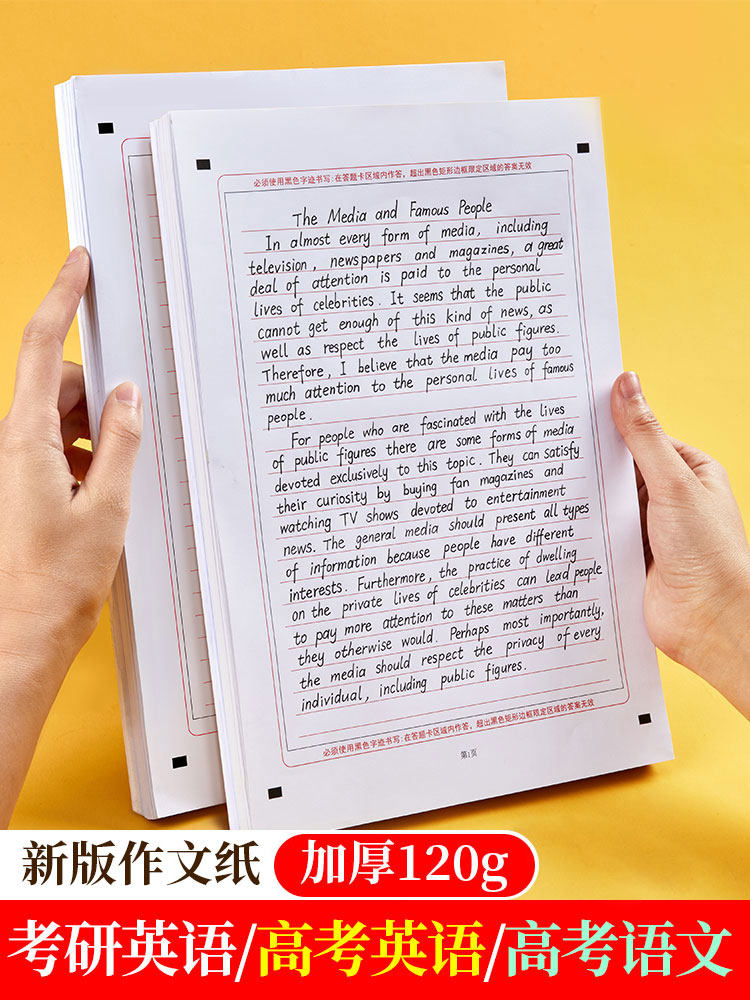 必须使用黑色字迹书写:在答题卡区域内作答，超出黑色矩形边框限定区域的答案无效
The Media and Famous People
In almost every form of media, including
television, newspapers and magazines, a great
deal of attention is paid to the personal
lives of celebrities. It seems that the public
cannot get enough of this kind of news, as
well as respect the lives of public figures.
Therefore, I believe that the media pay too
much attention to the personal lives of famous
people.
For people who are fascinated with the lives
of public figures there are some forms of media
devoted exclusively to this topic. They can satisfy
their curiosity by buying fan magazines and
watching TV shows devoted to entertainment
news. The general media should present all types
of information because people have different
interests. Furthermore, the practice of dwelling
on the private lives of celebrities can lead people
to pay more attention to these matters than
they otherwise would. Perhaps most importantly,
the media should respect the privacy of every
individual, including public figures.
必须使用黑色字迹书写:在答题卡区域内作答，超出黑色矩形边框限定区域的答案无效
第1页
新版作文纸 加厚120g
考研英语/高考英语/高考语文